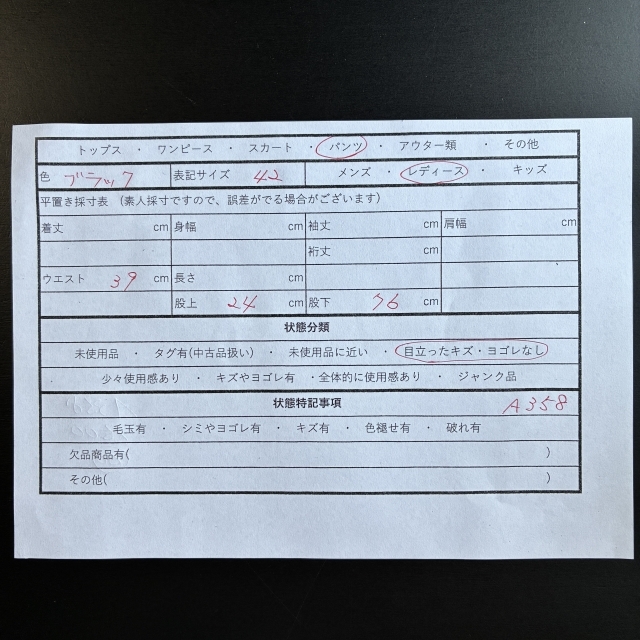 トップス ・ ワンピース ・ スカート ・ パンツ ・ アウター類 ・ その他
色 ブラック 表記サイズ 42 メンズ ・ レディース ・ キッズ
平置き採寸表 (素人採寸ですので、誤差がでる場合がございます)
着丈 cm 身幅 cm 袖丈 cm 肩幅 cm
裄丈 cm
ウエスト 39 cm 長さ cm
股上 24 cm 股下 76 cm
状態分類
未使用品 ・ タグ有(中古品扱い) ・ 未使用品に近い ・ 目立ったキズ・ヨゴレなし
少々使用感あり ・ キズやヨゴレ有 ・全体的に使用感あり ・ ジャンク品
状態特記事項 A358
毛玉有 ・ シミやヨゴレ有 ・ キズ有 ・ 色褪せ有 ・ 破れ有
欠品商品有( )
その他( )